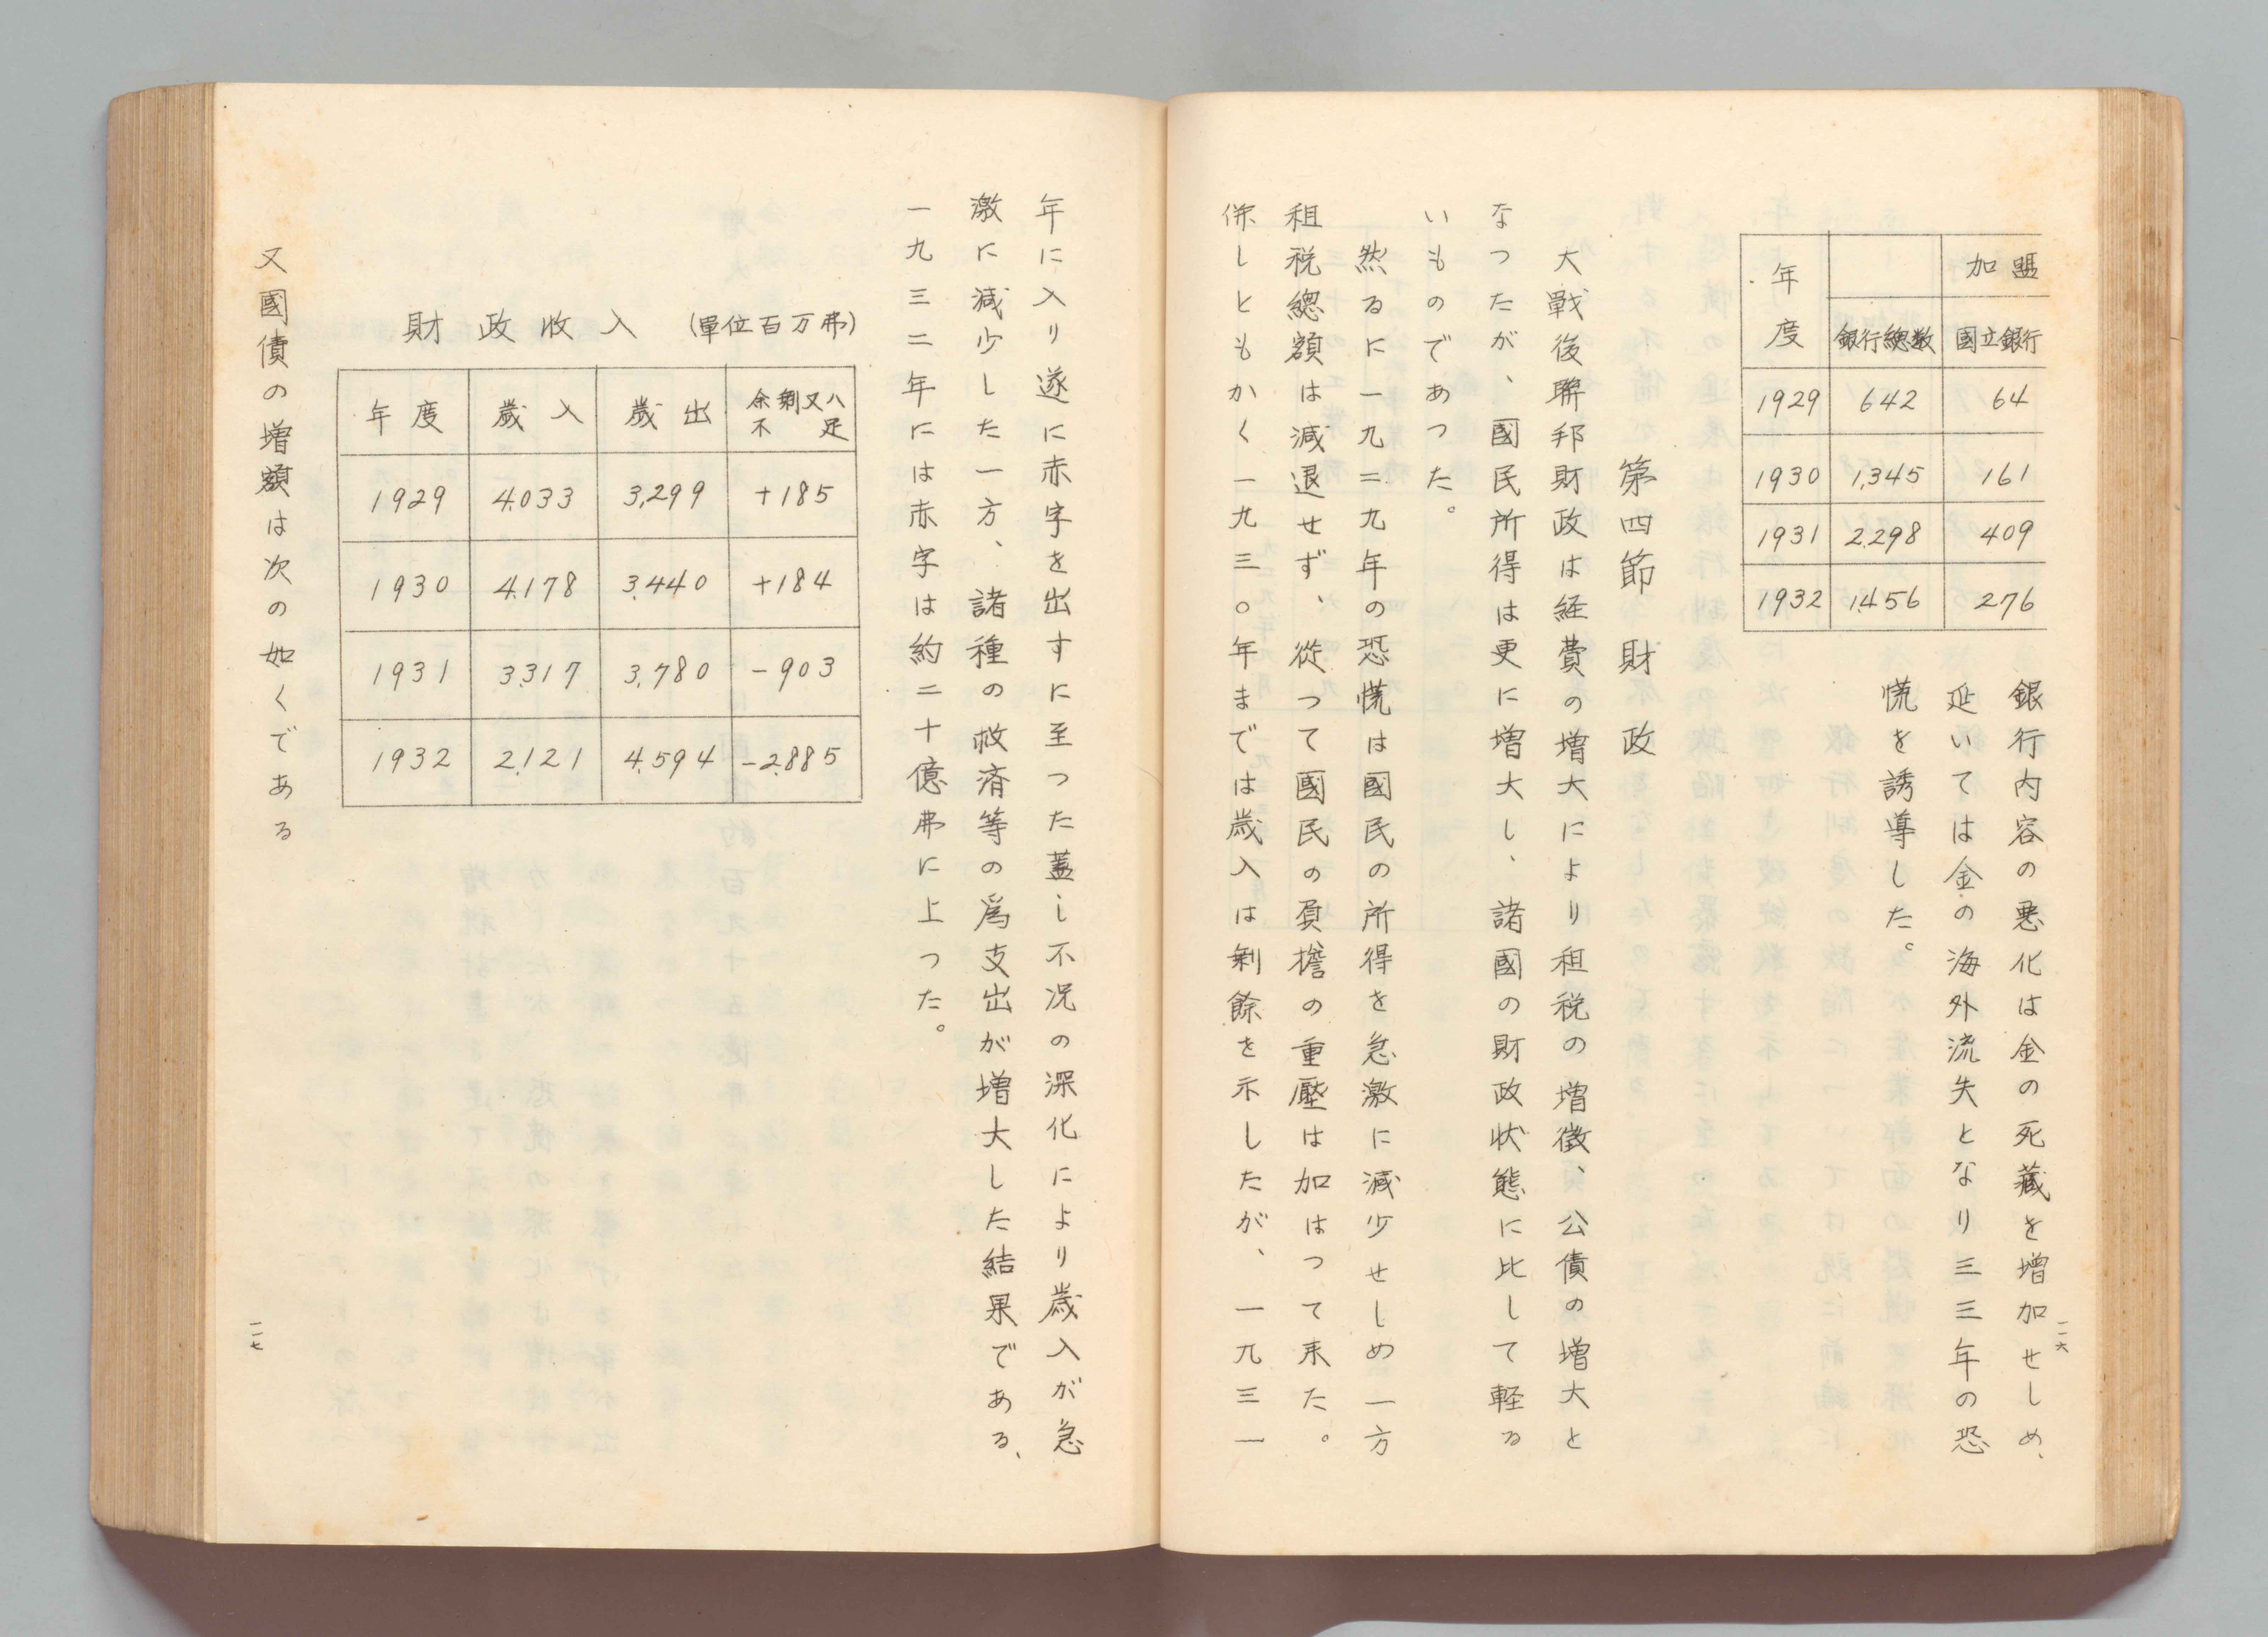 加盟
年度 銀行總數 國立銀行
1929 642 64
1930 1,345 161
1931 2,298 409
1932 1,456 276
銀行内容の悪化は金の死藏を增加せしめ、
延いては金の海外流失となり三三年の恐
慌を誘導した。
第四節 財政
大戰後聯邦財政は経費の增大により租税の增徴、公債の增大と
なつたが、國民所得は更に增大し、諸國の財政状態に比して軽る
いものであつた。
然るに一九二九年の恐慌は國民の所得を急激に減少せしめ一方
租税總額は減退せず、從つて國民の負擔の重壓は加はつて来た。
併しともかく一九三〇年までは歳入は剰餘を示したが、一九三一
二一六
年に入り遂に赤字を出すに至つた蓋し不況の深化により歳入が急
激に減少した一方、諸種の救済等の爲支出が增大した結果である、
一九三二年には赤字は約二十億弗に上つた。
財政收入 (單位百万弗)
年度 歲入 歲出 余剰又ハ不足
1929 4,033 3,299 +185
1930 4,178 3,440 +184
1931 3,317 3,780 -903
1932 2,121 4,594 -2,885
又國債の增額は次の如くである
二一七